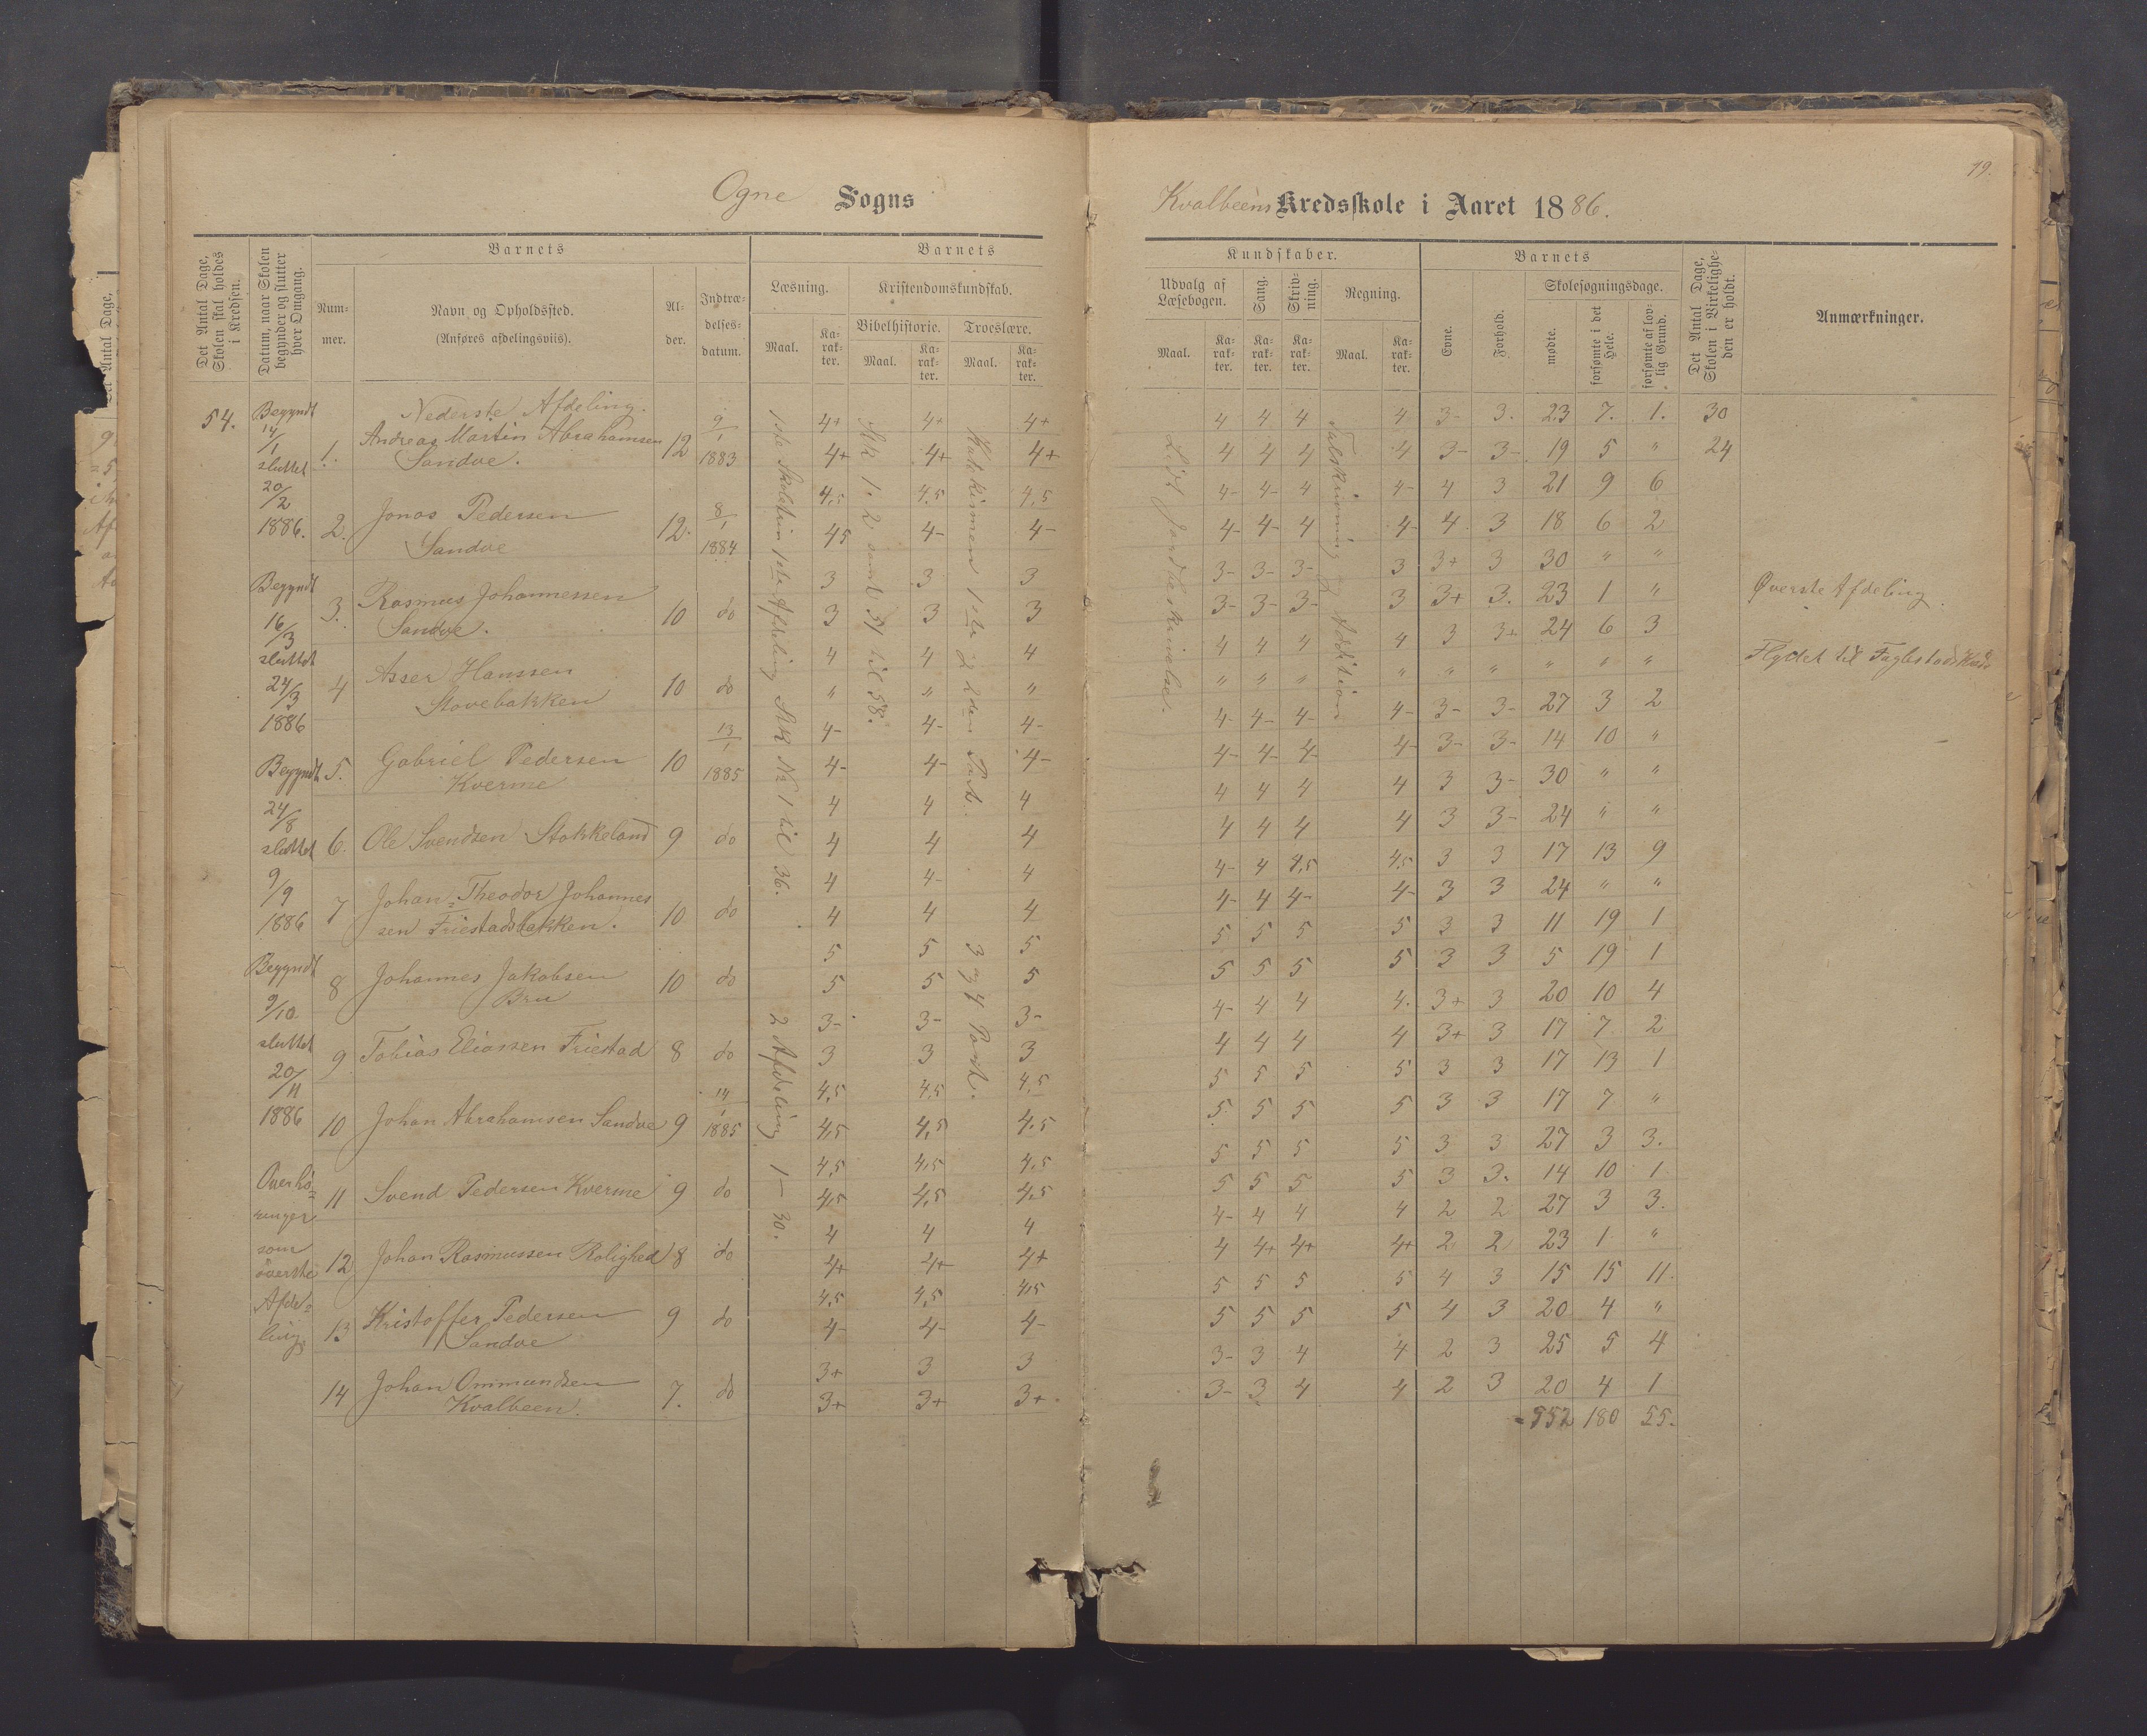 19.
Ogne Sogns
Kvalbeens Kredsskole i Aaret 1886.
Det Antal Dage, Skolen skal holdes i Kredsen.
Datum, naar Skolen begynder og slutter hver Omgang.
Barnets
Nummer.
Navn og Opholdssted.
(Anføres afdelingsviis).
Alder.
Indtrædelsesdatum.
Barnets
Læsning.
Kristendomskundskab.
Bibelhistorie.
Troeslære.
Maal.
Karakter.
Maal.
Karakter.
Maal.
Karakter.
Kundskaber.
Udvalg af Læsebogen.
Sang.
Skrivning.
Regning.
Maal.
Karakter.
Karakter.
Karakter.
Maal.
Karakter.
Barnets
Evne.
Forhold.
Skolesøgningsdage.
mødte.
forsømte i det Hele.
forsømte af lovlig Grund.
Det Antal Dage, Skolen i Virkeligheden er holdt.
Anmærkninger.
54.
Begyndt
14/1
sluttet
20/2
1886.
Begyndt
16/3
sluttet
24/3
1886
Begyndt
24/8
sluttet
9/9
1886
Begyndt
9/10
sluttet
20/11
1886
Overhø=
som
øverste
Afde=
ling
Nederste Afdeling.
1. Andreas Martin Abrahamsen 12 9/1
Sandve. 1883
2. Jonas Pedersen 12. 8/1
Sandve 1884
3. Rasmus Johannessen 10 do
Sandve.
4 Asser Hanssen 10 do
Stovebakken
5. Gabriel Pedersen 10 13/1
Kverme 1885
6. Ole Svendsen Stokkeland 9 do
7 Johan=Theodor Johannes 10 do
sen Friestadbakken.
8 Johannes Jakobsen 10 do
Bru
9 Tobias Eliassen Friestad 8 do
10 Johan Abrahamsen Sandve 9 14/1 1885
11 Svend Pedersen Kverme 9 do
12 Johan Rasmussen Rolighed 8 do
13 Kristoffer Pedersen 9 do
Sandve
14 Johan Ommundsen 7. do
Kvalbeen.
1ste Skoletrin 1ste Afdeling Stk No 1 til 36.
2 Afdeling 1-30.
Stk 1. 2 samt 31 til 58.
Katekismen 1ste og 2den Part.
3 og 4 Part.
Lidt Jordbeskrivelse.
Talskrivning og Addition
4+ 4+ 4+ 4 4 4 4 3- 3. 23 7. 1. 30
4+ 4+ 4+ 4 4 4 4 3- 3- 19 5 " 24
4,5 4,5 4,5 4- 4- 4 4- 4 3 21 9 6
45 4- 4- 4- 4- 4 4- 4. 3 18 6 2
3 3 3 3- 3- 3- 3 3+ 3 30 " "
3 3 3 3- 3- 3- 3 3+ 3. 23 1 " Øverste Afdeling.
4 4 4 4 4 4 4 3 3+ 24 6 3
" " " " " " " " " " " " Flydet til
4- 4- 4- 4- 4- 4- 4- 3- 3- 27 3 2
4- 4- 4- 4- 4- 4- 4- 3- 3- 14 10 "
4 4 4 4 4 4 4 3 3- 30 " "
4 4 4 4 4 4 4 3 3- 24 " "
4 4- 4 4- 4 4,5 4,5 3 3 17 13 9
4 4 4 4- 4 4- 4- 3 3 24 " "
5 5 5 5 5 5 5 3 3 11 19 1
5 5 5 5 5 5 5 3 3 5 19 1
3- 3- 3- 4- 4 4 4. 3+ 3 20 10 4
3 3 3 4 4 4 4 3+ 3 17 7 2
4,5 4,5 4,5 5 5 5 5 3 3 17 13 1
4,5 4,5 4,5 5 5 5 5 3 3 17 7 "
4,5 4,5 4,5 5 5 5 5 3 3 27 3 3.
4,5 4,5 4,5 5 5 5 5 3 3. 14 10 1
4 4 4 4- 4 4 4 2 2 27 3 3.
4+ 4+ 4+ 4 4+ 4+ 4+ 2 2 23 1 "
4,5 4,5 4,5 5 5 5 5 4 3 15 15 11.
4- 4- 4- 5 5 5 5 4 3 20 4 "
3+ 3 3 3- 3 4 4 2 3 25 5 4
3+ 3+ 3+. 3- 3 4 4 2 3 20 4 1
=552 180 55.